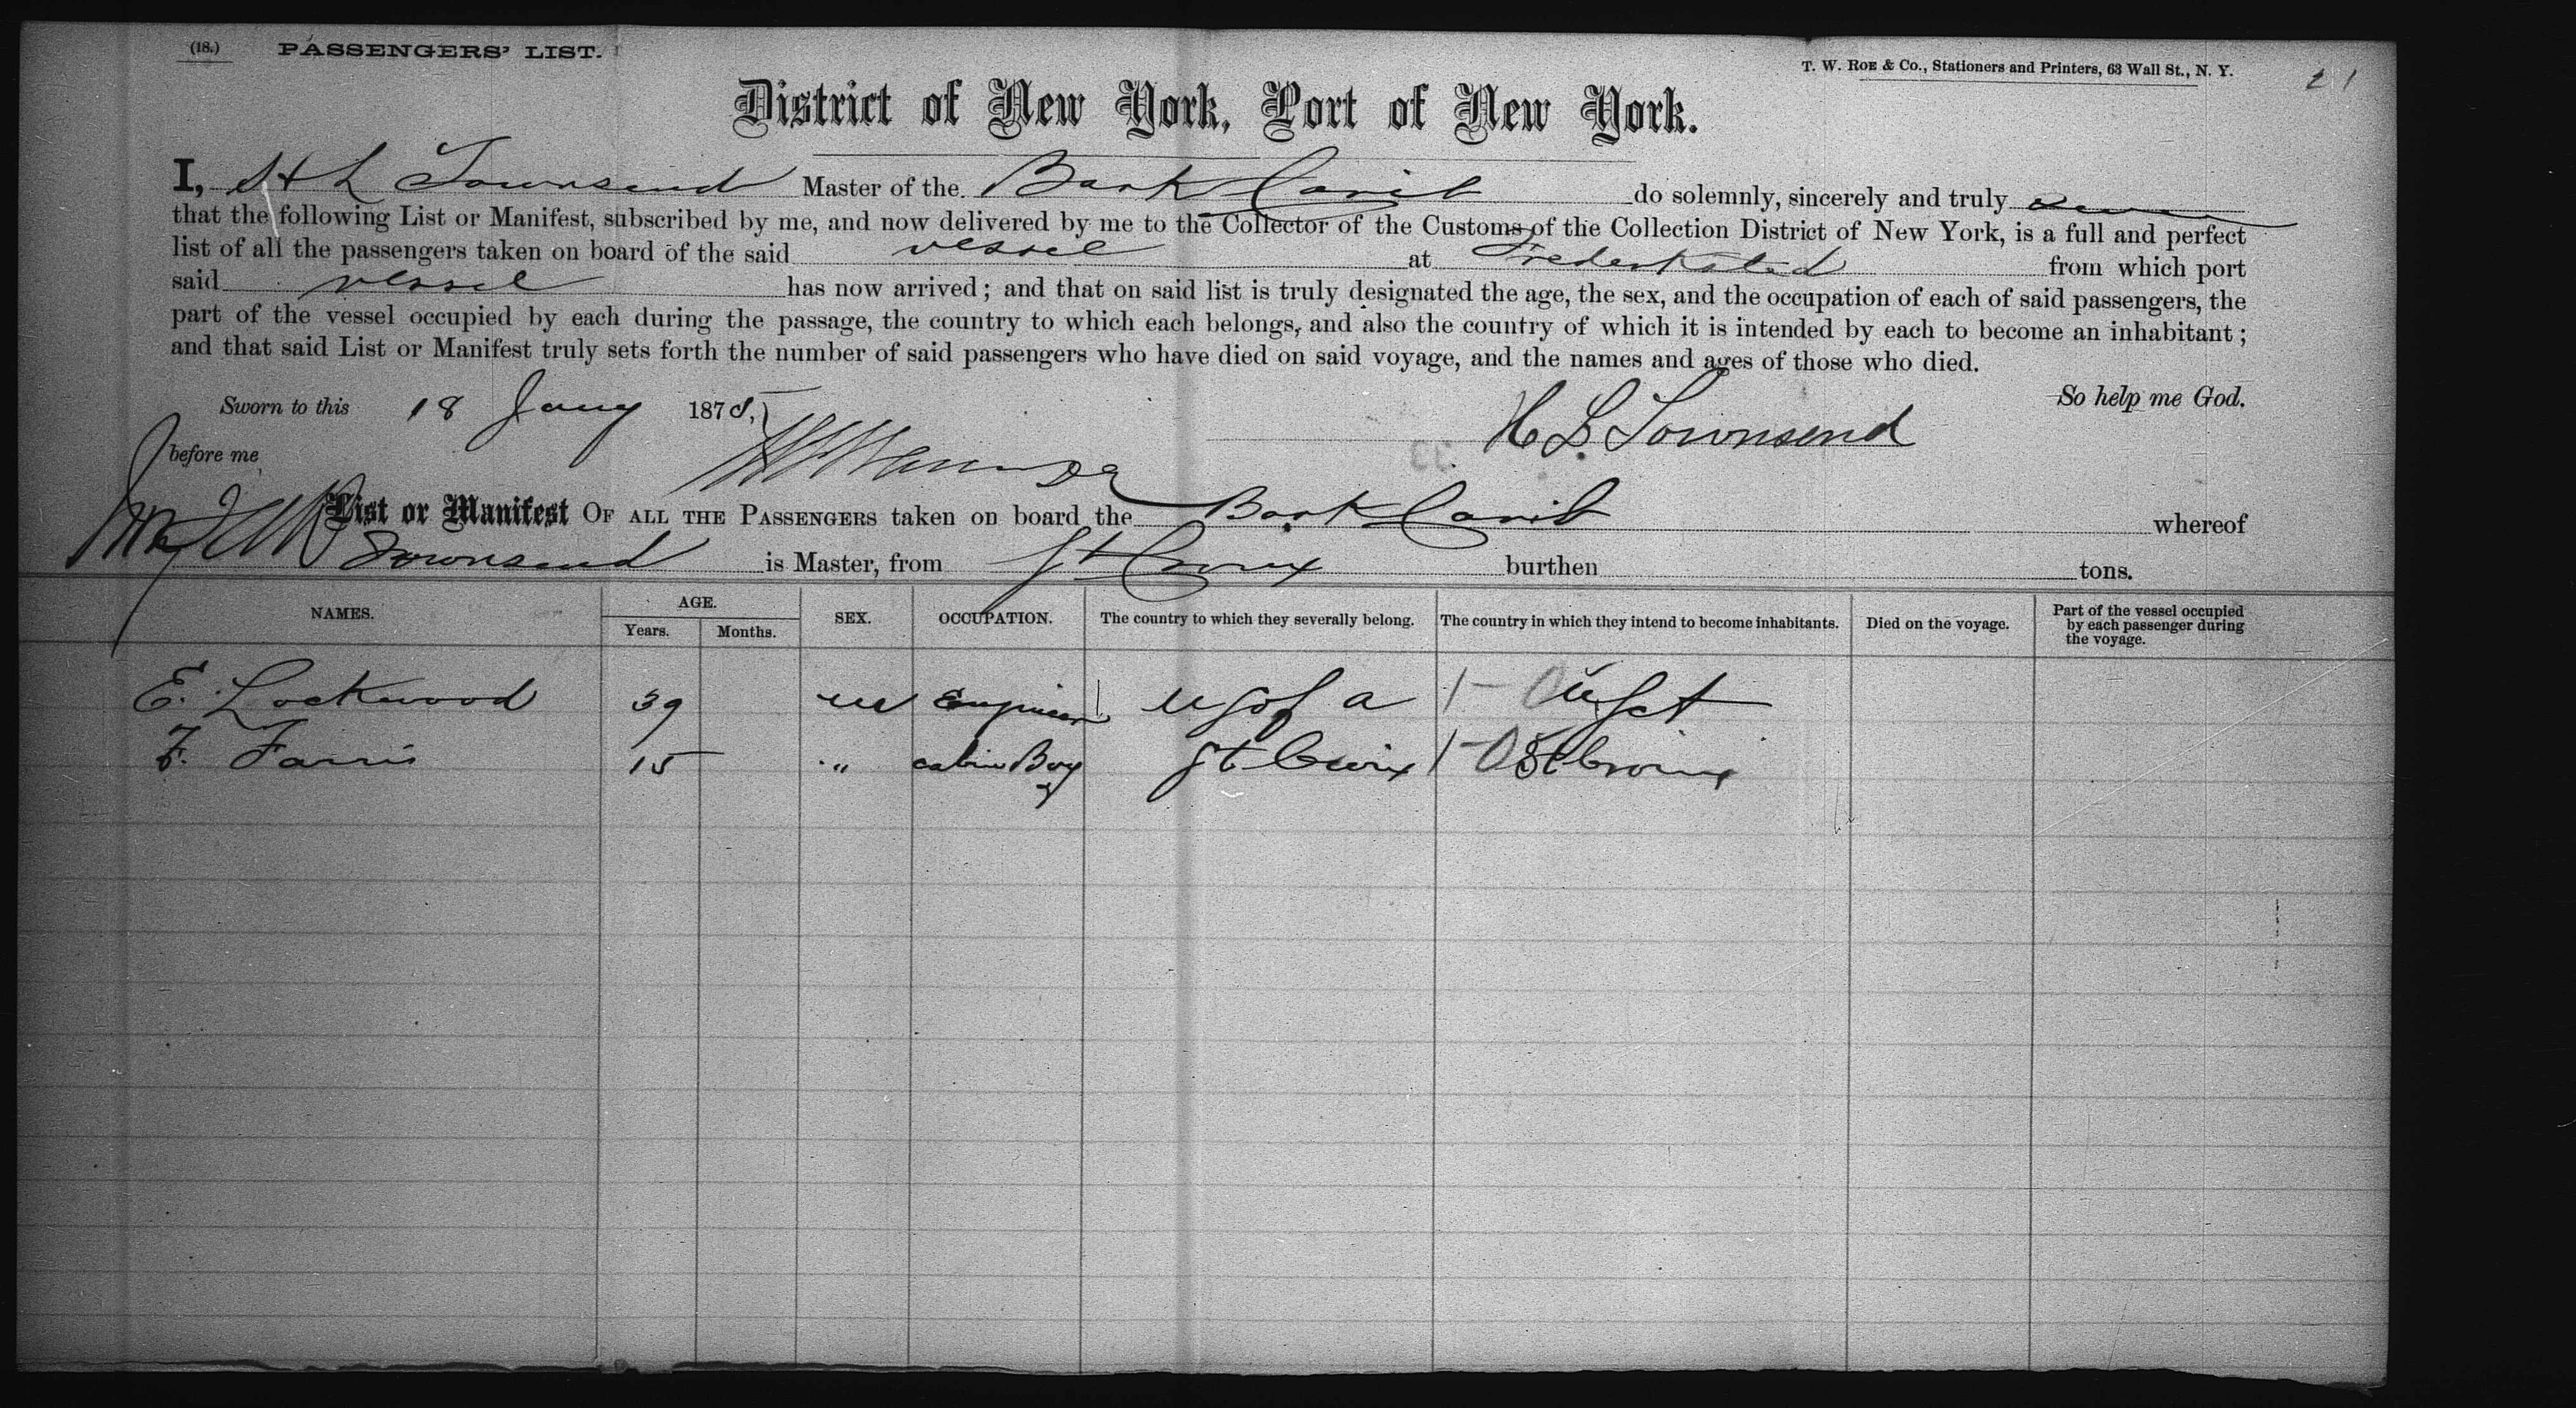 (18.) PASSENGERS' LIST.
T. W. ROE & Co., Stationers and Printers, 63 Wall St., N. Y.
21
District of New York, Port of New York.
I, H L Townsend Master of the Bark Carib do solemnly, sincerely and truly
that the following List or Manifest, subscribed by me, and now delivered by me to the Collector of the Customs of the Collection District of New York, is a full and perfect
list of all the passengers taken on board of the said vessel at Frederksted from which port
said vessel has now arrived; and that on said list is truly designated the age, the sex, and the occupation of each of said passengers, the
part of the vessel occupied by each during the passage, the country to which each belongs, and also the country of which it is intended by each to become an inhabitant;
and that said List or Manifest truly sets forth the number of said passengers who have died on said voyage, and the names and ages of those who died.
So help me God.
Sworn to this 18 Jany 1878,
H L Townsend
before me
List or Manifest OF ALL THE PASSENGERS taken on board the Bark Carib whereof
Townsend is Master, from St Croix burthen tons.
NAMES. AGE. Years. Months. SEX. OCCUPATION. The country to which they severally belong. The country in which they intend to become inhabitants. Died on the voyage. Part of the vessel occupied by each passenger during the voyage.
E. Lockwood 39 m Engineer U S of a
F. Farris 15 " cabin Boy St Croix St Croix